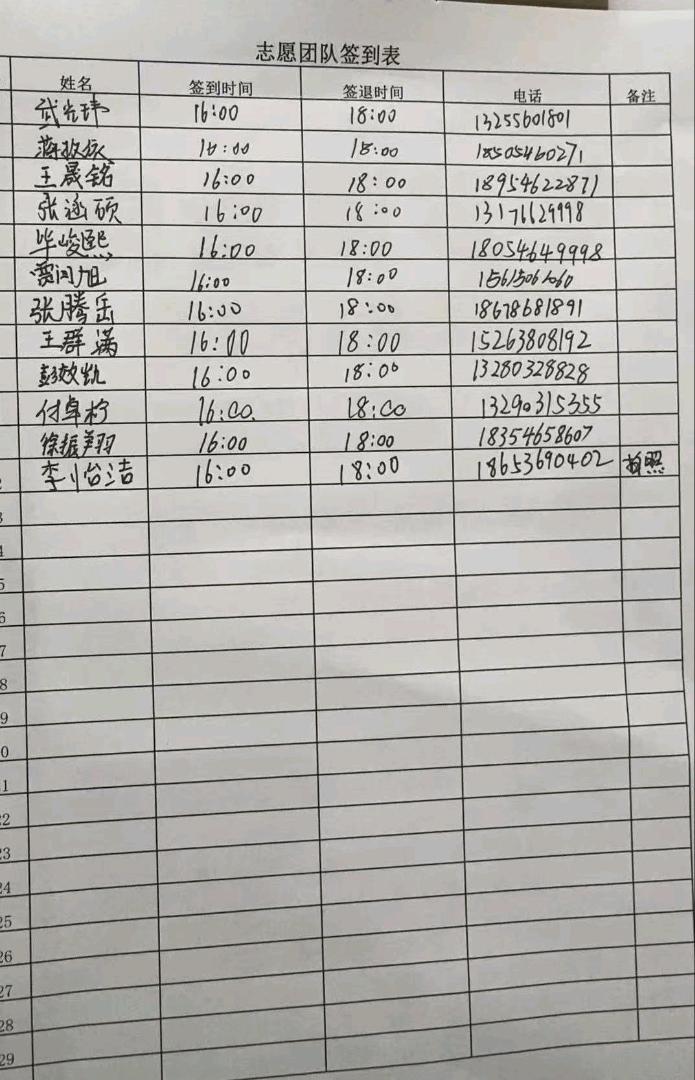 志愿团队签到表
姓名 签到时间 签退时间 电话 备注
武光玮 16:00 18:00 13255601801
蒋 16:00 18:00 18505460271
王晟铭 16:00 18:00 18954622871
张涵硕 16:00 18:00 13176629998
毕峻熙 16:00 18:00 18054649998
贾闰旭 16:00 18:00
张腾岳 16:00 18:00 18678681891
王群满 16:00 18:00 15263808192
彭效凯 16:00 18:00 13280328828
付卓柠 16:00 18:00 13290315355
徐振翔 16:00 18:00 18354658607
2 李怡洁 16:00 18:00 18653690402 拍照
3
4
5
6
7
8
9
0
1
22
23
24
25
26
27
28
29